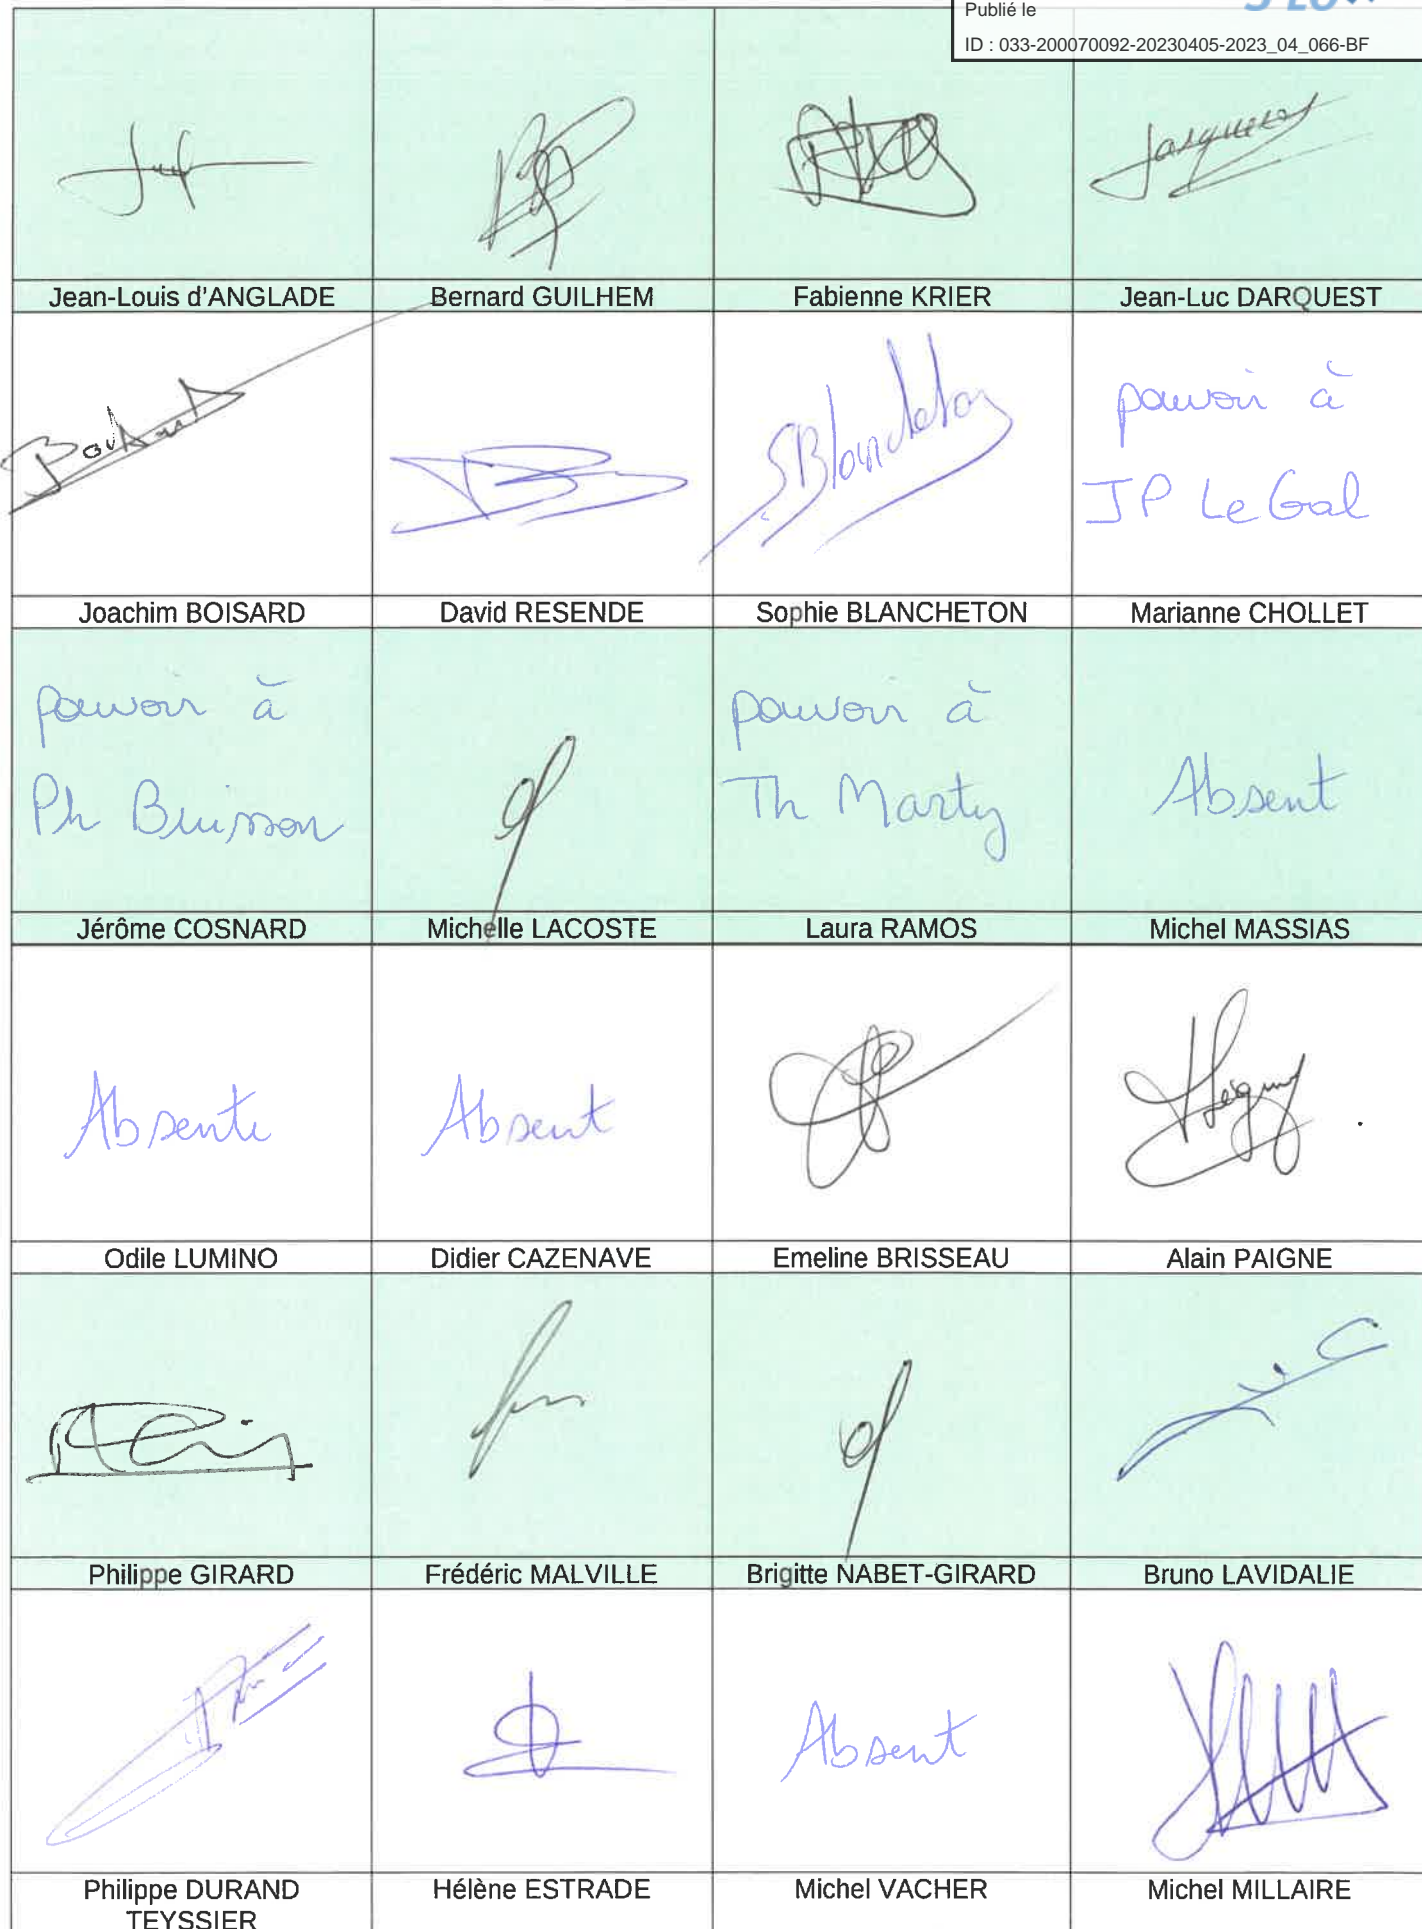 Publié le
ID : 033-200070092-20230405-2023_04_066-BF
Jean-Louis d'ANGLADE
Bernard GUILHEM
Fabienne KRIER
Jean-Luc DARQUEST
S.Blancheton
pouvoir à
JP Le Gal
Joachim BOISARD
David RESENDE
Sophie BLANCHETON
Marianne CHOLLET
pouvoir à
Ph Buisson
pouvoir à
Th Marty
Absent
Jérôme COSNARD
Michelle LACOSTE
Laura RAMOS
Michel MASSIAS
Absente
Absent
Odile LUMINO
Didier CAZENAVE
Emeline BRISSEAU
Alain PAIGNE
Philippe GIRARD
Frédéric MALVILLE
Brigitte NABET-GIRARD
Bruno LAVIDALIE
Absent
Philippe DURAND
TEYSSIER
Hélène ESTRADE
Michel VACHER
Michel MILLAIRE